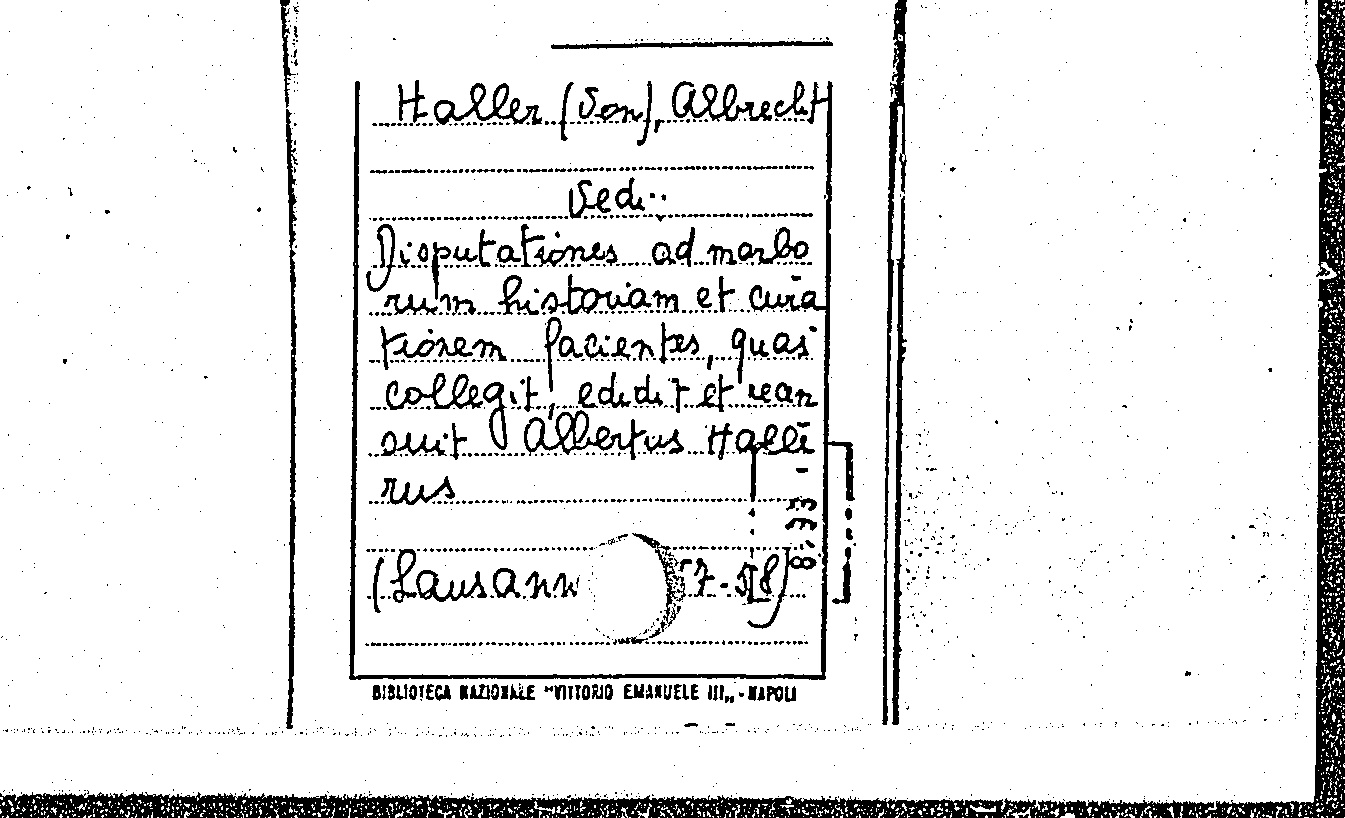 Haller (Von), Albrecht
Vedi..
Disputationes ad morbo
rum historiam et cura
tionem facientes, quas
collegit, edidit et rean
suit Albertus Halle
rus
(Lausann 7-58)
BIBLIOTECA NAZIONALE "VITTORIO EMANUELE III„ - NAPOLI